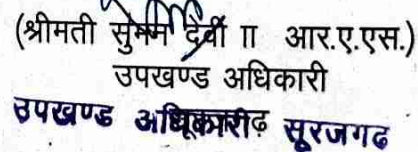 (श्रीमती सुमन देवी II आर.ए.एस.)
उपखण्ड अधिकारी
उपखण्ड अधिकारी सूरजगढ